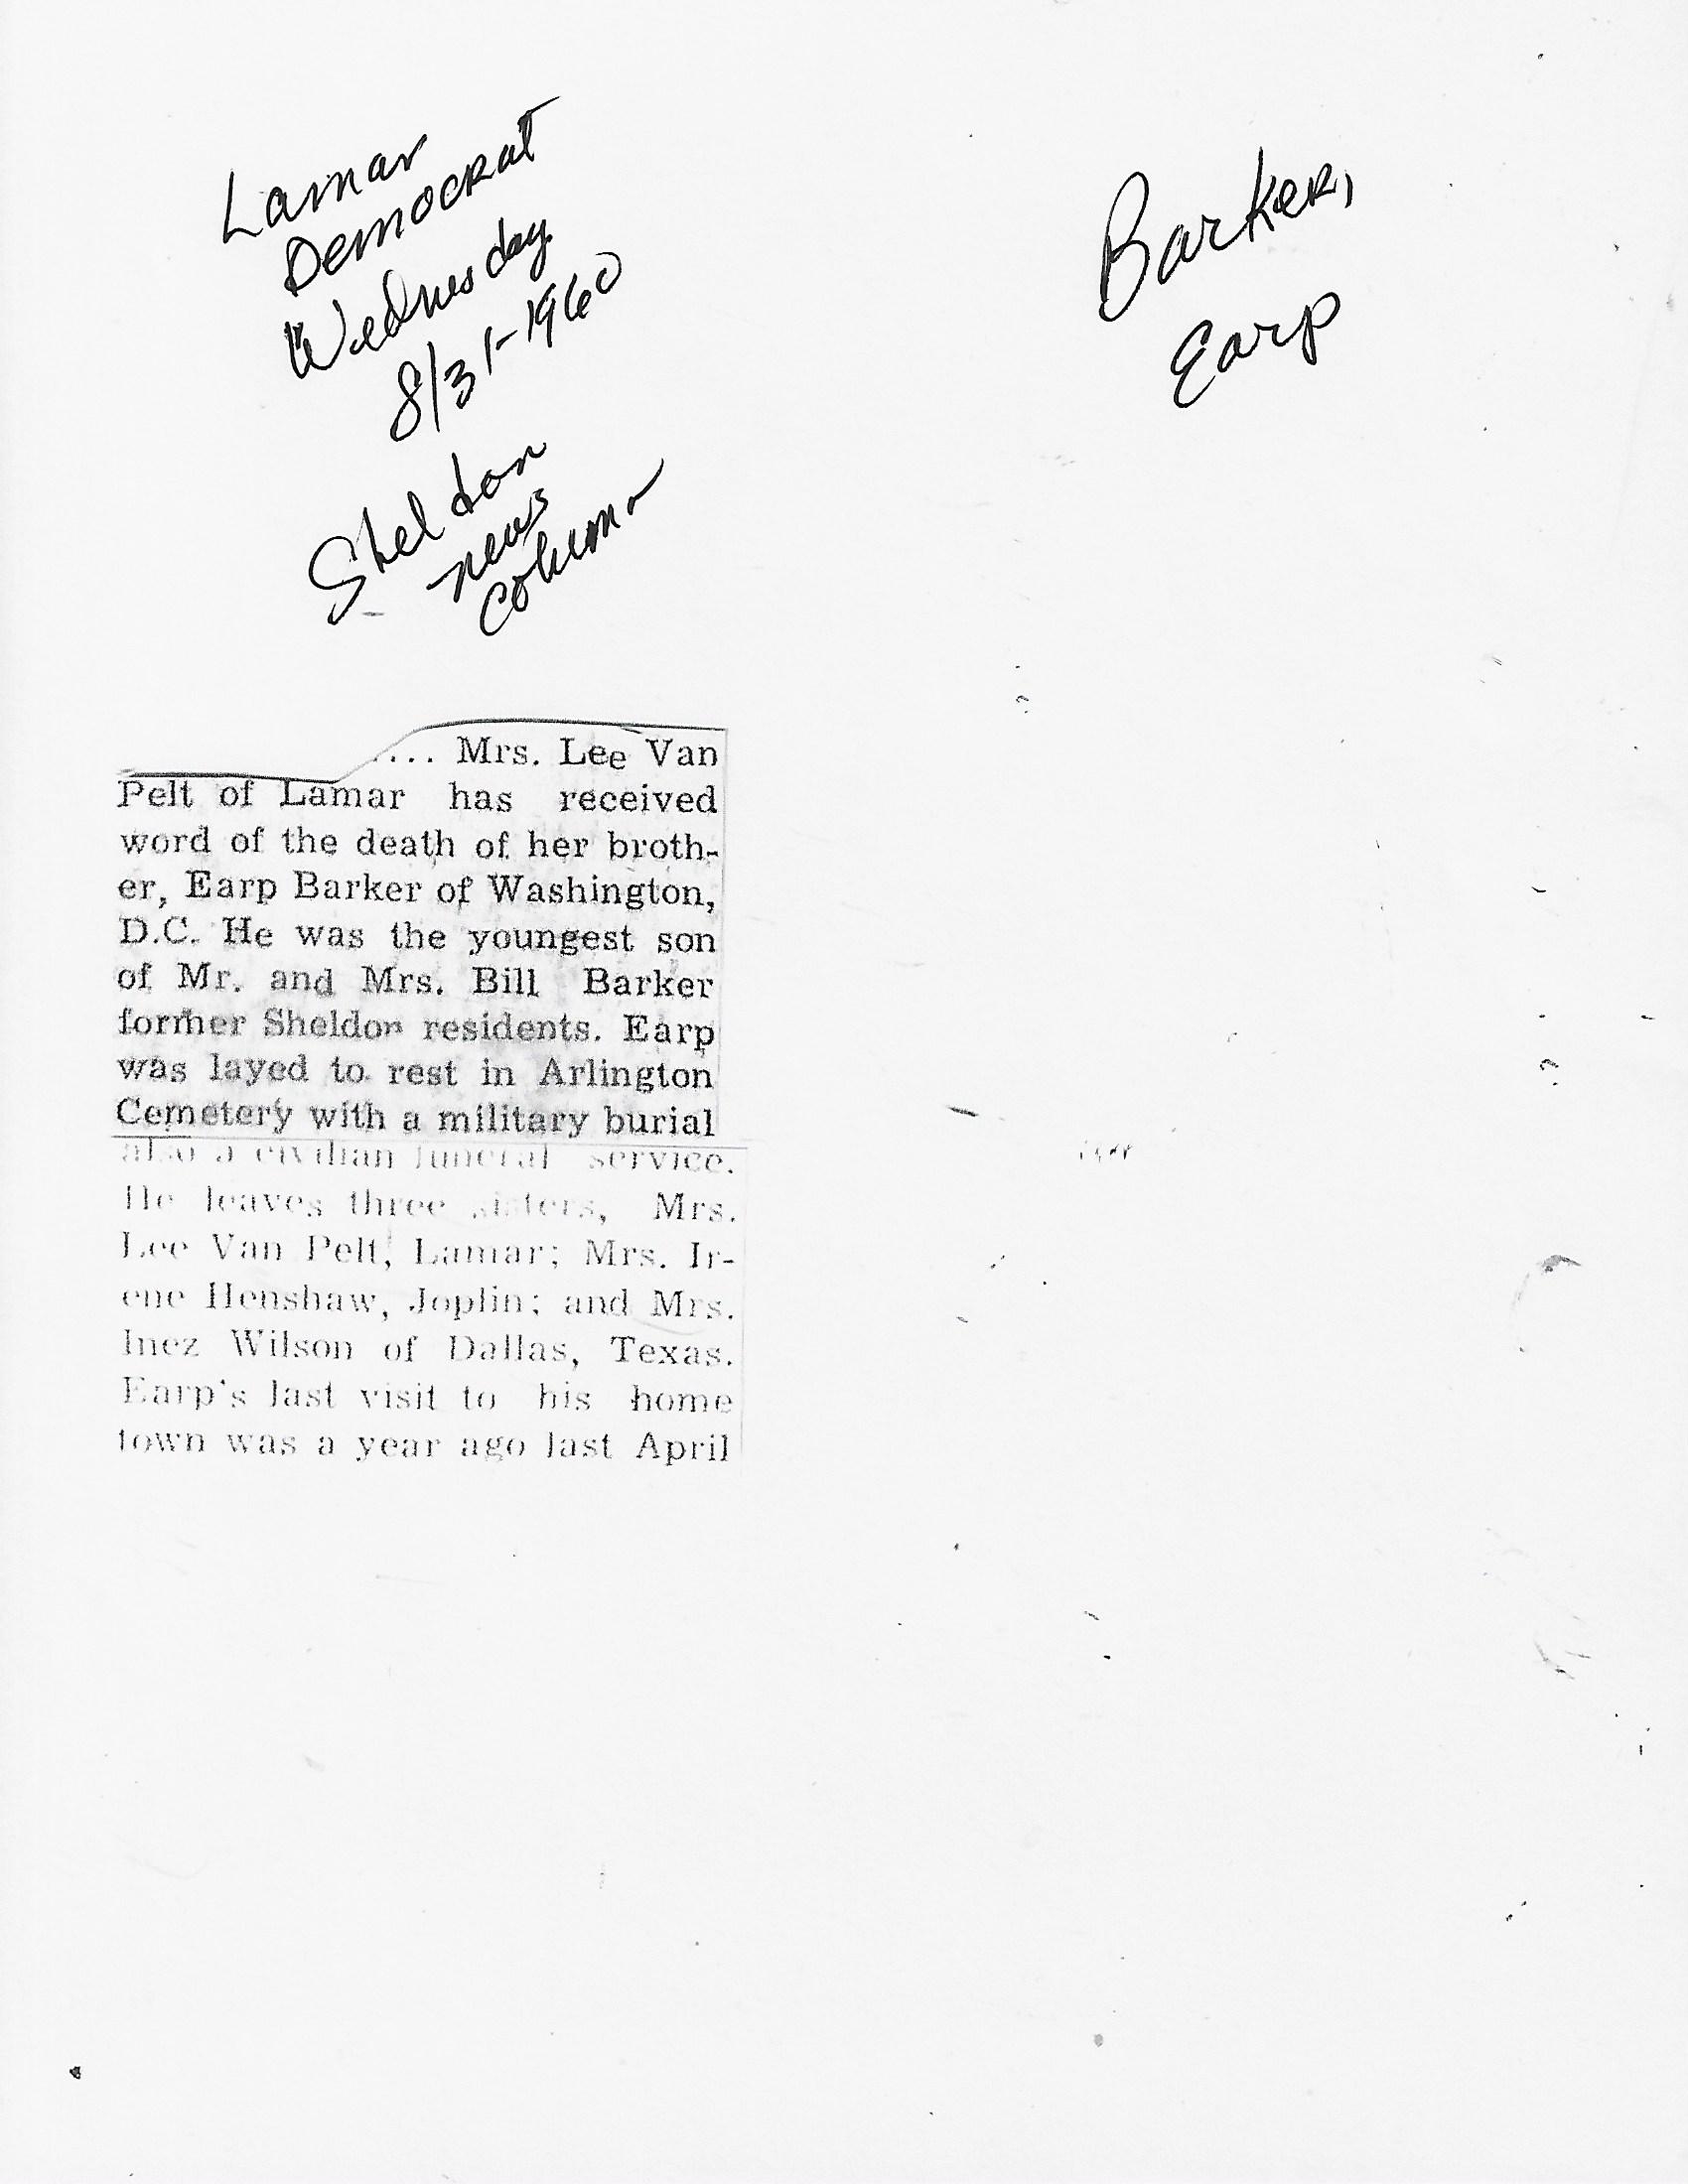 Lamar
Democrat
Wednesday
8/31-1960
Sheldon
news
column
Barker,
Earp
.... Mrs. Lee Van
Pelt of Lamar has received
word of the death of her broth-
er, Earp Barker of Washington,
D.C. He was the youngest son
of Mr. and Mrs. Bill Barker
former Sheldon residents. Earp
was layed to rest in Arlington
Cemetery with a military burial
also a civilian funeral service.
He leaves three sisters, Mrs.
Lee Van Pelt, Lamar; Mrs. Ir-
ene Henshaw, Joplin; and Mrs.
Inez Wilson of Dallas, Texas.
Earp's last visit to his home
town was a year ago last April